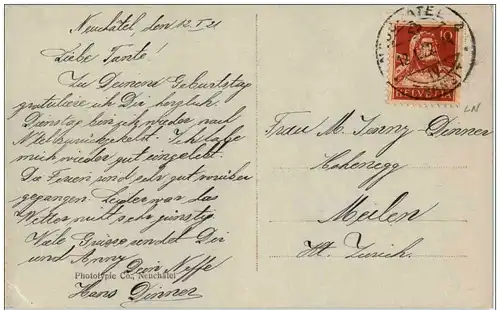 Neuchâtel, den 12. V. 21
Liebe Tante!
Zu Deinem Geburtstag
gratuliere ich Dir herzlich.
Dienstag bin ich wieder nach
zurückgekehrt. Ich habe
mich wieder gut eingelebt.
Die Ferien sind sehr gut vorüber
gegangen. Leider war das
Wetter nicht sehr günstig.
Viele Grüsse sendet Dir
und Anny
Dein Neffe
Hans Dinner
Phototypie Co., Neuchâtel
10
HELVETIA
LN
Frau M. Jenny-Dinner
Hohenegg
Meilen
Kt. Zürich.